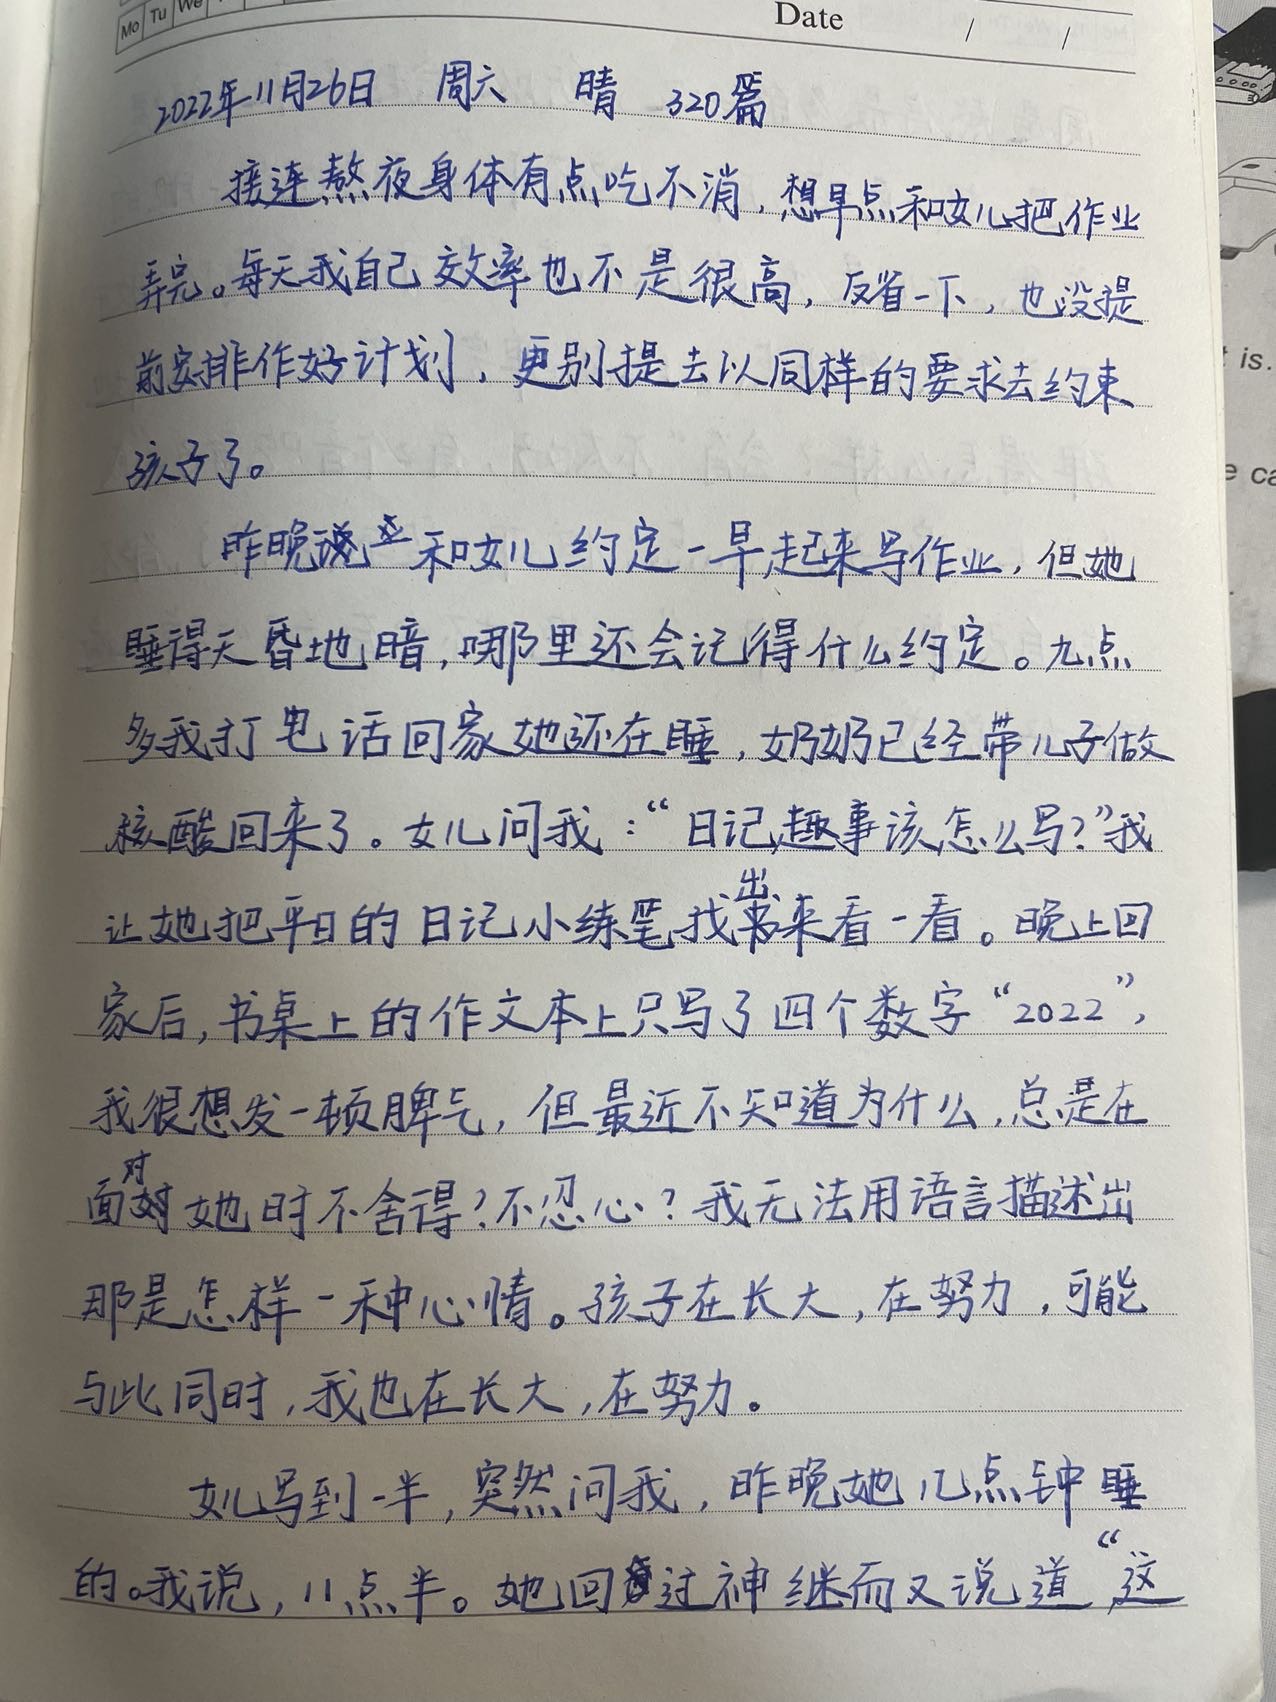 Mo Tu We
Date / /
2022年11月26日 周六 晴 320篇
接连熬夜身体有点吃不消，想早点和女儿把作业
弄完。每天我自己效率也不是很高，反省一下，也没提
前安排作好计划，更别提去以同样的要求去约束
孩子了。
昨晚和女儿约定一早起来写作业，但她
睡得天昏地暗，哪里还会记得什么约定。九点
多我打电话回家她还在睡，奶奶已经带儿子做
核酸回来了。女儿问我：“日记，趣事该怎么写？”我
让她把平日的日记小练笔找出来看一看。晚上回
家后，书桌上的作文本上只写了四个数字“2022”，
我很想发一顿脾气，但最近不知道为什么，总是在
面对她时不舍得？不忍心？我无法用语言描述出
那是怎样一种心情。孩子在长大，在努力，可能
与此同时，我也在长大，在努力。
女儿写到一半，突然问我，昨晚她几点钟睡
的。我说，11点半。她回过神继而又说道“这
is.
e ca